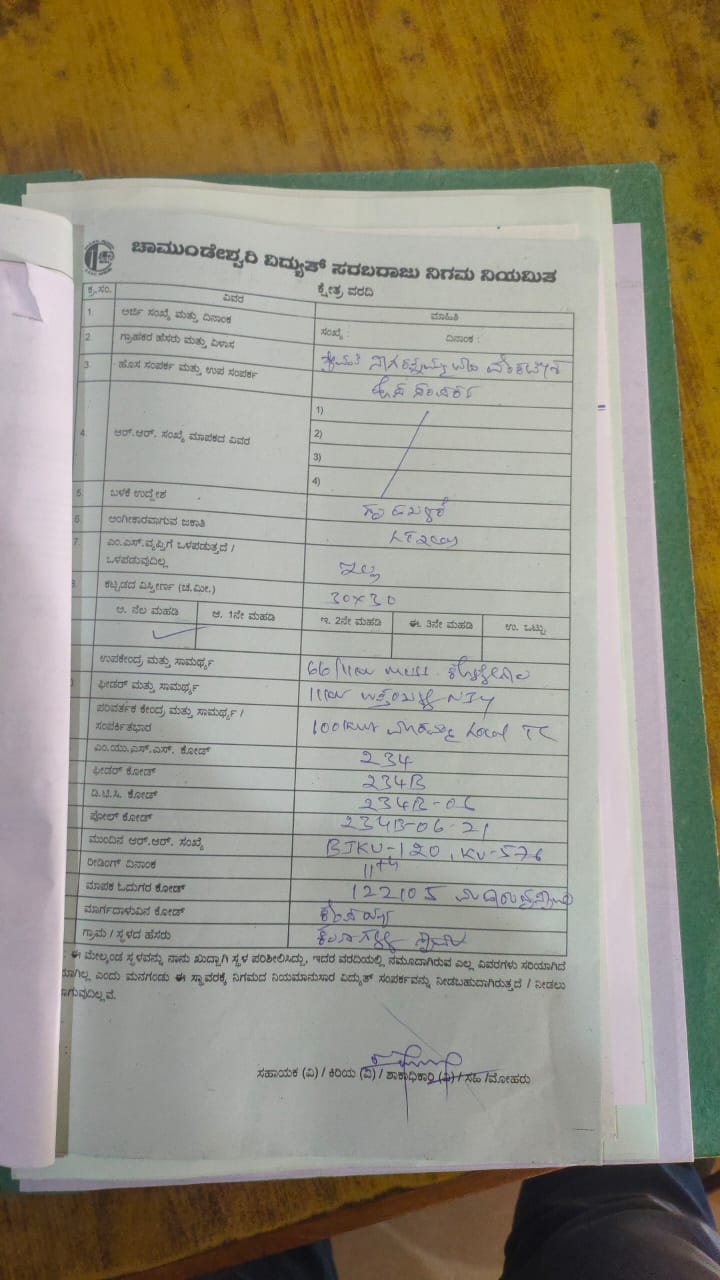 ಚಾಮುಂಡೇಶ್ವರಿ ವಿದ್ಯುತ್ ಸರಬರಾಜು ನಿಗಮ ನಿಯಮಿತ
ಕ್ಷೇತ್ರ ವರದಿ
ಕ್ರ.ಸಂ. ವಿವರ ಮಾಹಿತಿ
1. ಅರ್ಜಿ ಸಂಖ್ಯೆ ಮತ್ತು ದಿನಾಂಕ ಸಂಖ್ಯೆ : ದಿನಾಂಕ :
2. ಗ್ರಾಹಕರ ಹೆಸರು ಮತ್ತು ವಿಳಾಸ
3. ಹೊಸ ಸಂಪರ್ಕ ಮತ್ತು ಉಪ ಸಂಪರ್ಕ ಹೊಸ ಸಂಪರ್ಕ
4. ಆರ್.ಆರ್. ಸಂಖ್ಯೆ ಮಾಪಕದ ವಿವರ
1)
2)
3)
4)
5. ಬಳಕೆ ಉದ್ದೇಶ
6. ಅಂಗೀಕಾರವಾಗುವ ಜಕಾತಿ
7. ಎಂ.ಎಸ್.ವ್ಯಪ್ತಿಗೆ ಒಳಪಡುತ್ತದೆ /
ಒಳಪಡುವುದಿಲ್ಲ ಇಲ್ಲ
8. ಕಟ್ಟಡದ ವಿಸ್ತೀರ್ಣ (ಚ.ಮೀ.) 30×30
ಅ. ನೆಲ ಮಹಡಿ ಆ. 1ನೇ ಮಹಡಿ ಇ. 2ನೇ ಮಹಡಿ ಈ. 3ನೇ ಮಹಡಿ ಉ. ಒಟ್ಟು
ಉಪಕೇಂದ್ರ ಮತ್ತು ಸಾಮರ್ಥ್ಯ 66/11KV MUSS
ಫೀಡರ್ ಮತ್ತು ಸಾಮರ್ಥ್ಯ 11KV NJY
ಪರಿವರ್ತಕ ಕೇಂದ್ರ ಮತ್ತು ಸಾಮರ್ಥ್ಯ /
ಸಂಪರ್ಕಿತಭಾರ 100KVA Local TC
ಎಂ.ಯು.ಎಸ್.ಎಸ್. ಕೋಡ್ 234
ಫೀಡರ್ ಕೋಡ್ 234B
ಡಿ.ಟಿ.ಸಿ. ಕೋಡ್ 234B-06
ಪೋಲ್ ಕೋಡ್ 234B-06-21
ಮುಂದಿನ ಆರ್.ಆರ್. ಸಂಖ್ಯೆ BJKV-120, KV-576
ರೀಡಿಂಗ್ ದಿನಾಂಕ 11th
ಮಾಪಕ ಓದುಗರ ಕೋಡ್ 122105
ಮಾರ್ಗದಾಳುವಿನ ಕೋಡ್
ಗ್ರಾಮ / ಸ್ಥಳದ ಹೆಸರು
: ಈ ಮೇಲ್ಕಂಡ ಸ್ಥಳವನ್ನು ನಾನು ಖುದ್ದಾಗಿ ಸ್ಥಳ ಪರಿಶೀಲಿಸಿದ್ದು, ಇದರ ವರದಿಯಲ್ಲಿ ನಮೂದಾಗಿರುವ ಎಲ್ಲ ವಿವರಗಳು ಸರಿಯಾಗಿದೆ
ಎಂದು ಮನಗಂಡು ಈ ಸ್ಥಾವರಕ್ಕೆ ನಿಗಮದ ನಿಯಮಾನುಸಾರ ವಿದ್ಯುತ್ ಸಂಪರ್ಕವನ್ನು ನೀಡಬಹುದಾಗಿರುತ್ತದೆ / ನೀಡಲು
ಸಹಾಯಕ (ವಿ) / ಕಿರಿಯ (ವಿ) / ಶಾಖಾಧಿಕಾರಿ (ವಿ) / ಸಹಿ /ಮೋಹರು